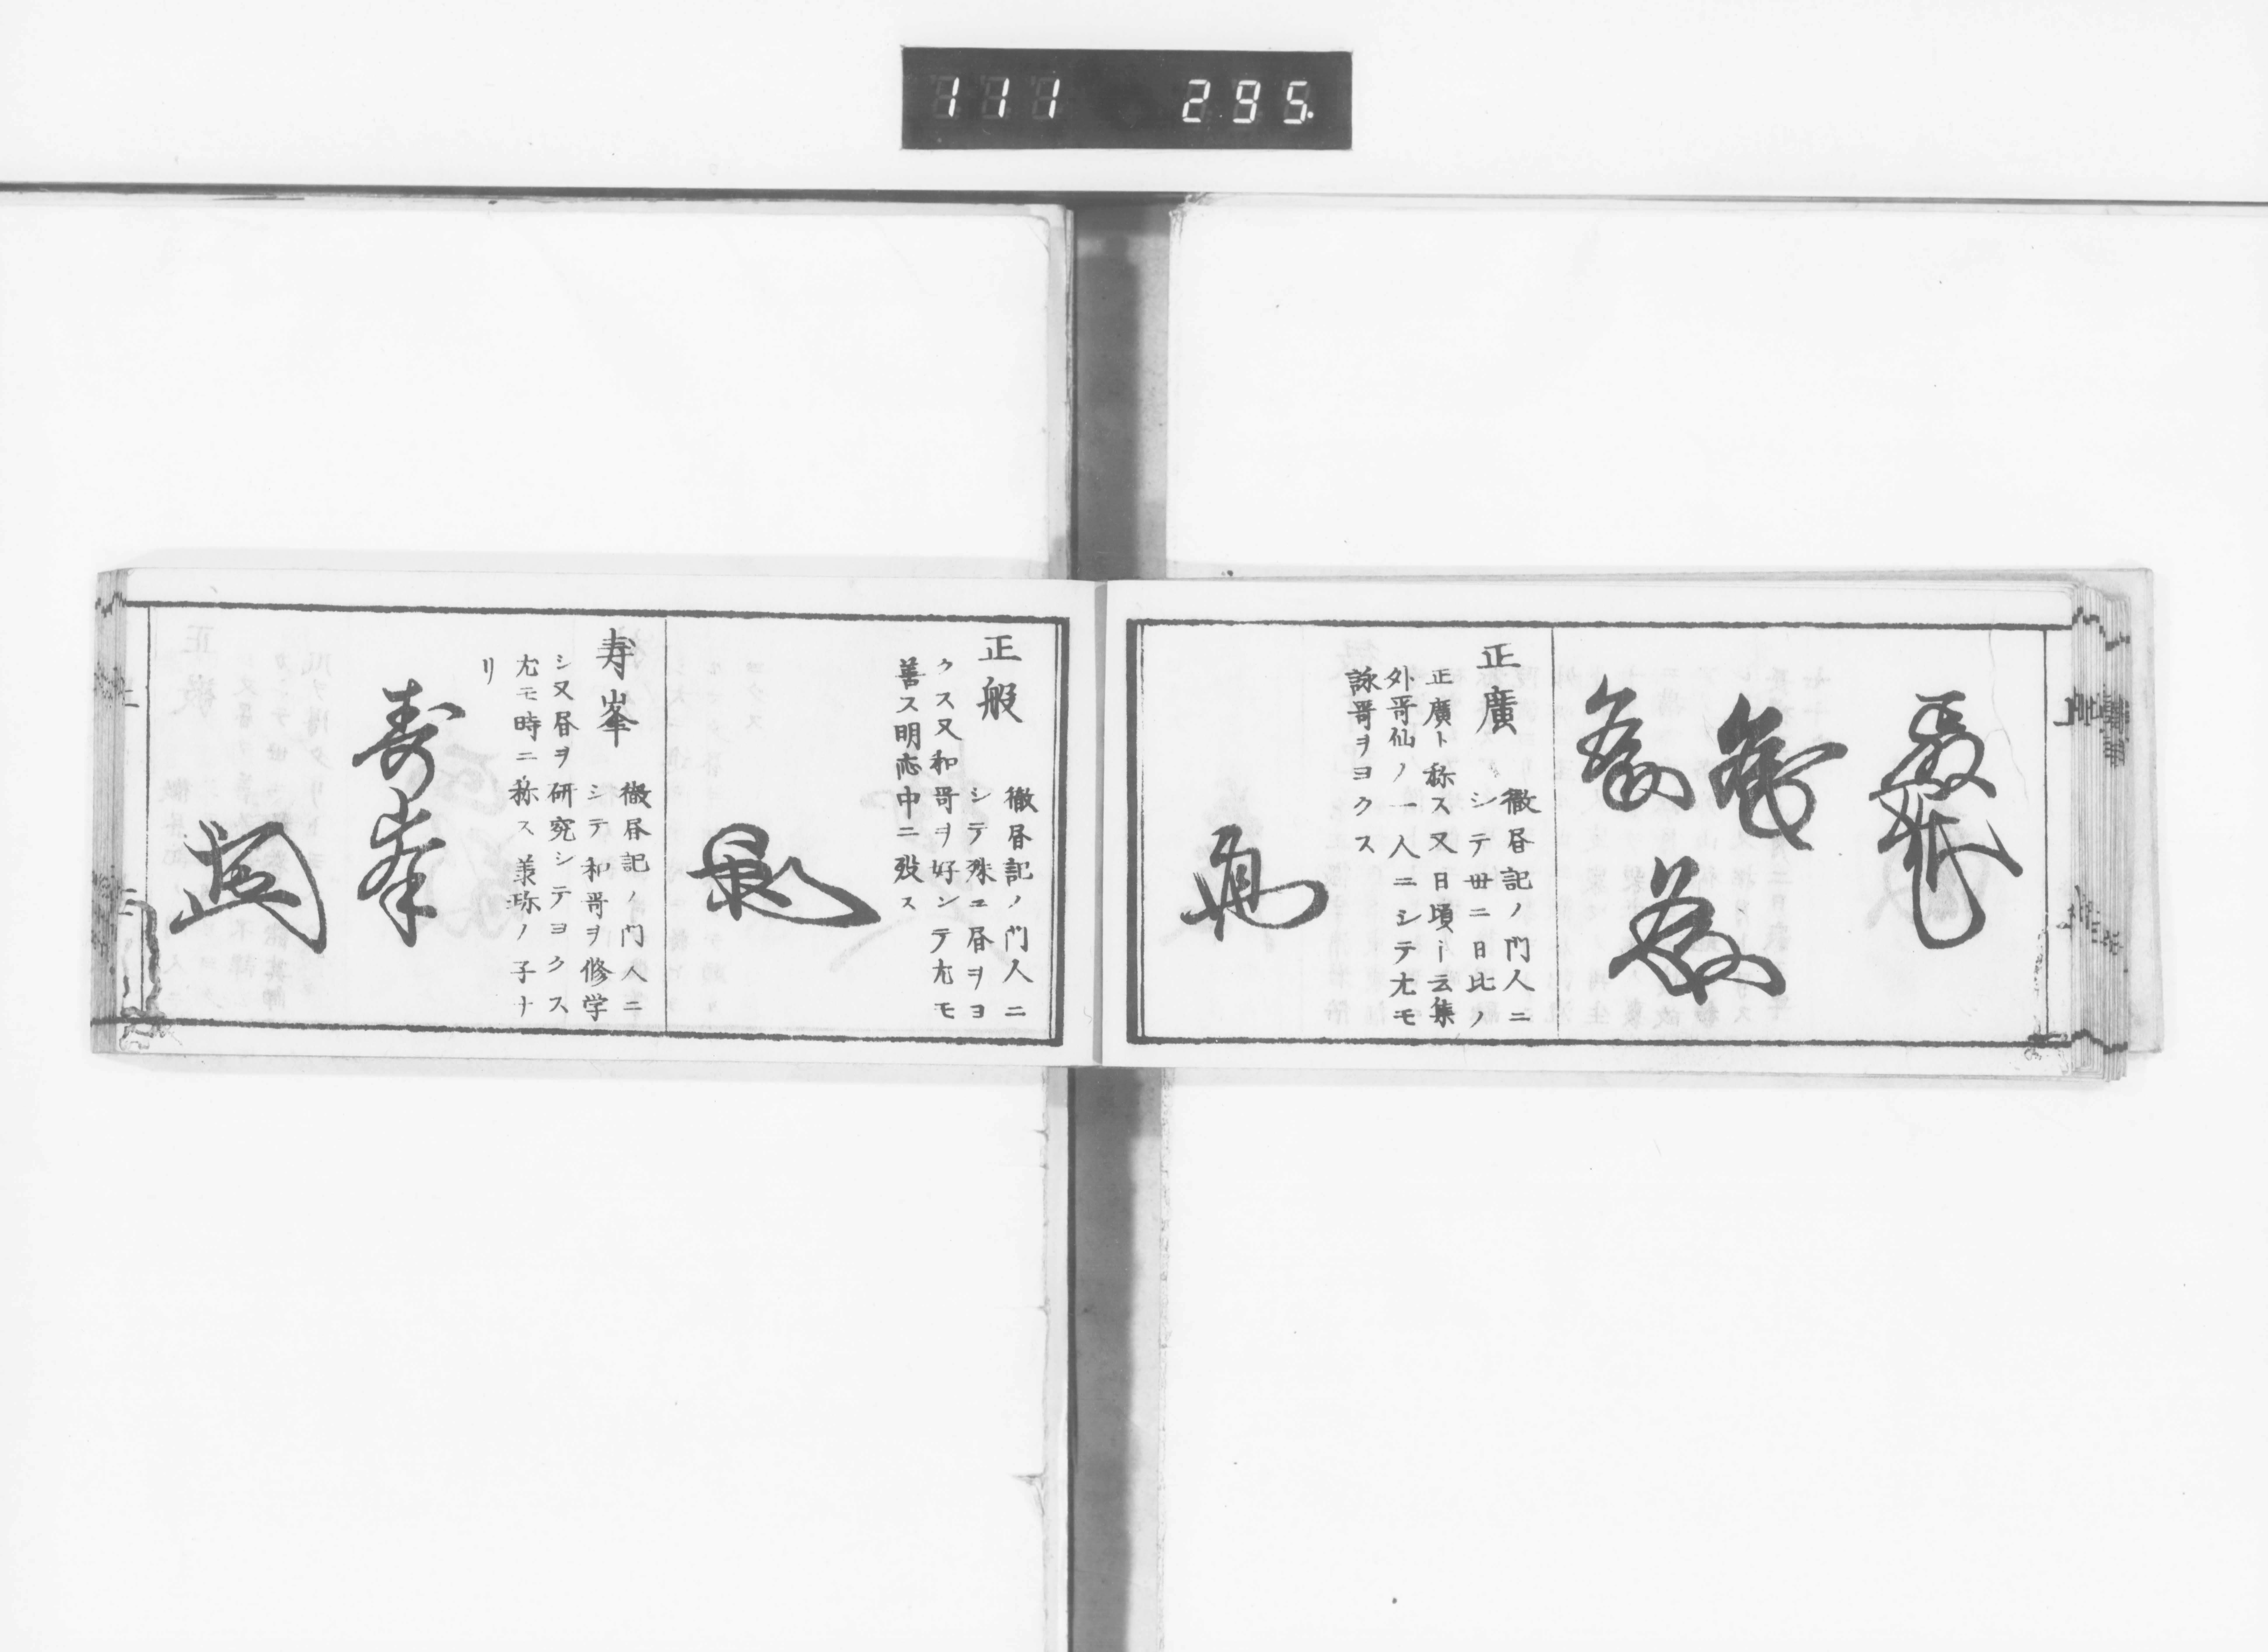 111 295.
正廣
徹昼記ノ門人ニ
シテ世ニ日比ノ
正廣ト称ス又日頃ト云集
外哥仙ノ一人ニシテ尤モ
詠哥ヲヨクス
正般
徹昼記ノ門人ニ
シテ殊ニ昼ヲヨ
クス又和哥ヲ好ンテ尤モ
善ス明応中ニ歿ス
寿峯
徹昼記ノ門人ニ
シテ和哥ヲ修学
シ又昼ヲ研究シテヨクス
尤モ時ニ称ス兼珎ノ子ナ
リ
寿峯